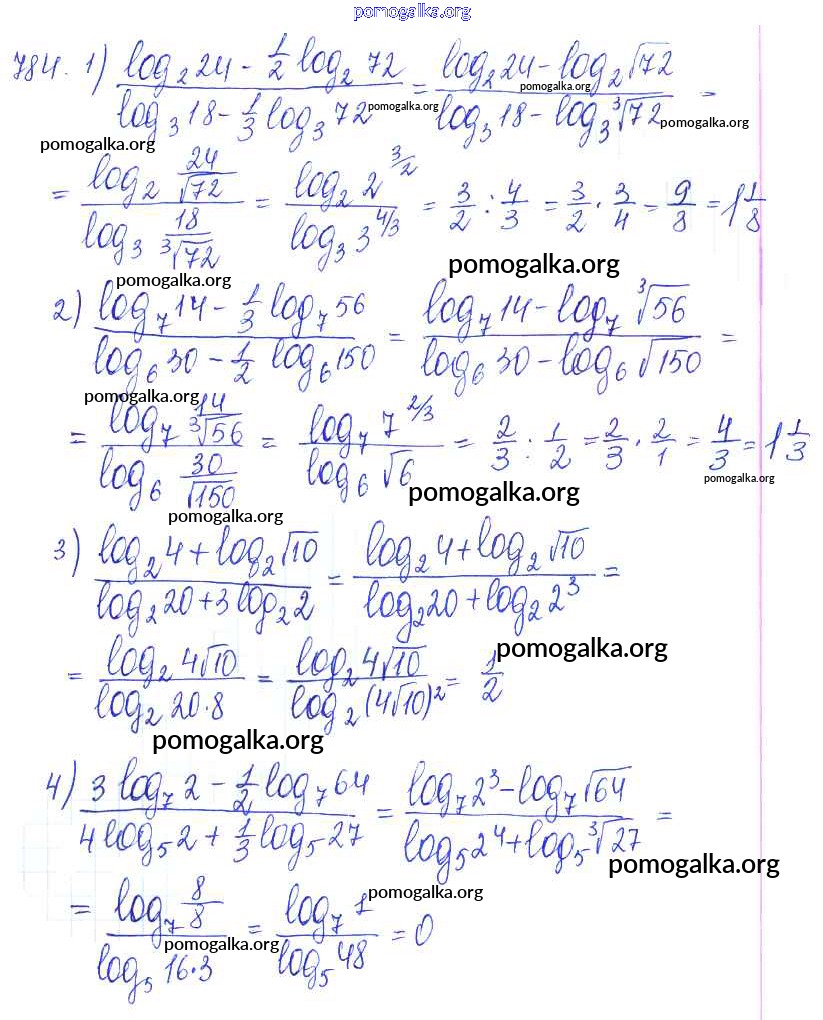 pomogalka.org
784. 1) (log₂24 - 1/2 log₂ 72)/(log₃18 - 1/3 log₃ 72) = (log₂24 - log₂√72)/(log₃18 - log₃∛72) =
pomogalka.org pomogalka.org pomogalka.org pomogalka.org
= (log₂ 24/√72)/(log₃ 18/∛72) = (log₂ 2^(3/2))/(log₃ 3^(4/3)) = 3/2 : 4/3 = 3/2 · 3/4 = 9/8 = 1 1/8
pomogalka.org pomogalka.org
2) (log₇14 - 1/3 log₇56)/(log₆30 - 1/2 log₆150) = (log₇14 - log₇ ∛56)/(log₆30 - log₆√150) =
pomogalka.org
= (log₇ 14/∛56)/(log₆ 30/√150) = (log₇ 7^(2/3))/(log₆ √6) = 2/3 : 1/2 = 2/3 · 2/1 = 4/3 = 1 1/3
pomogalka.org pomogalka.org pomogalka.org
3) (log₂4 + log₂√10)/(log₂20 + 3log₂2) = (log₂4 + log₂√10)/(log₂20 + log₂2³) =
pomogalka.org
= (log₂4√10)/(log₂20·8) = (log₂4√10)/(log₂(4√10)²) = 1/2
pomogalka.org
4) (3log₇2 - 1/2 log₇64)/(4log₅2 + 1/3 log₅27) = (log₇2³ - log₇√64)/(log₅2⁴ + log₅∛27) =
pomogalka.org
= (log₇ 8/8)/(log₅ 16·3) = (log₇ 1)/(log₅48) = 0
pomogalka.org pomogalka.org